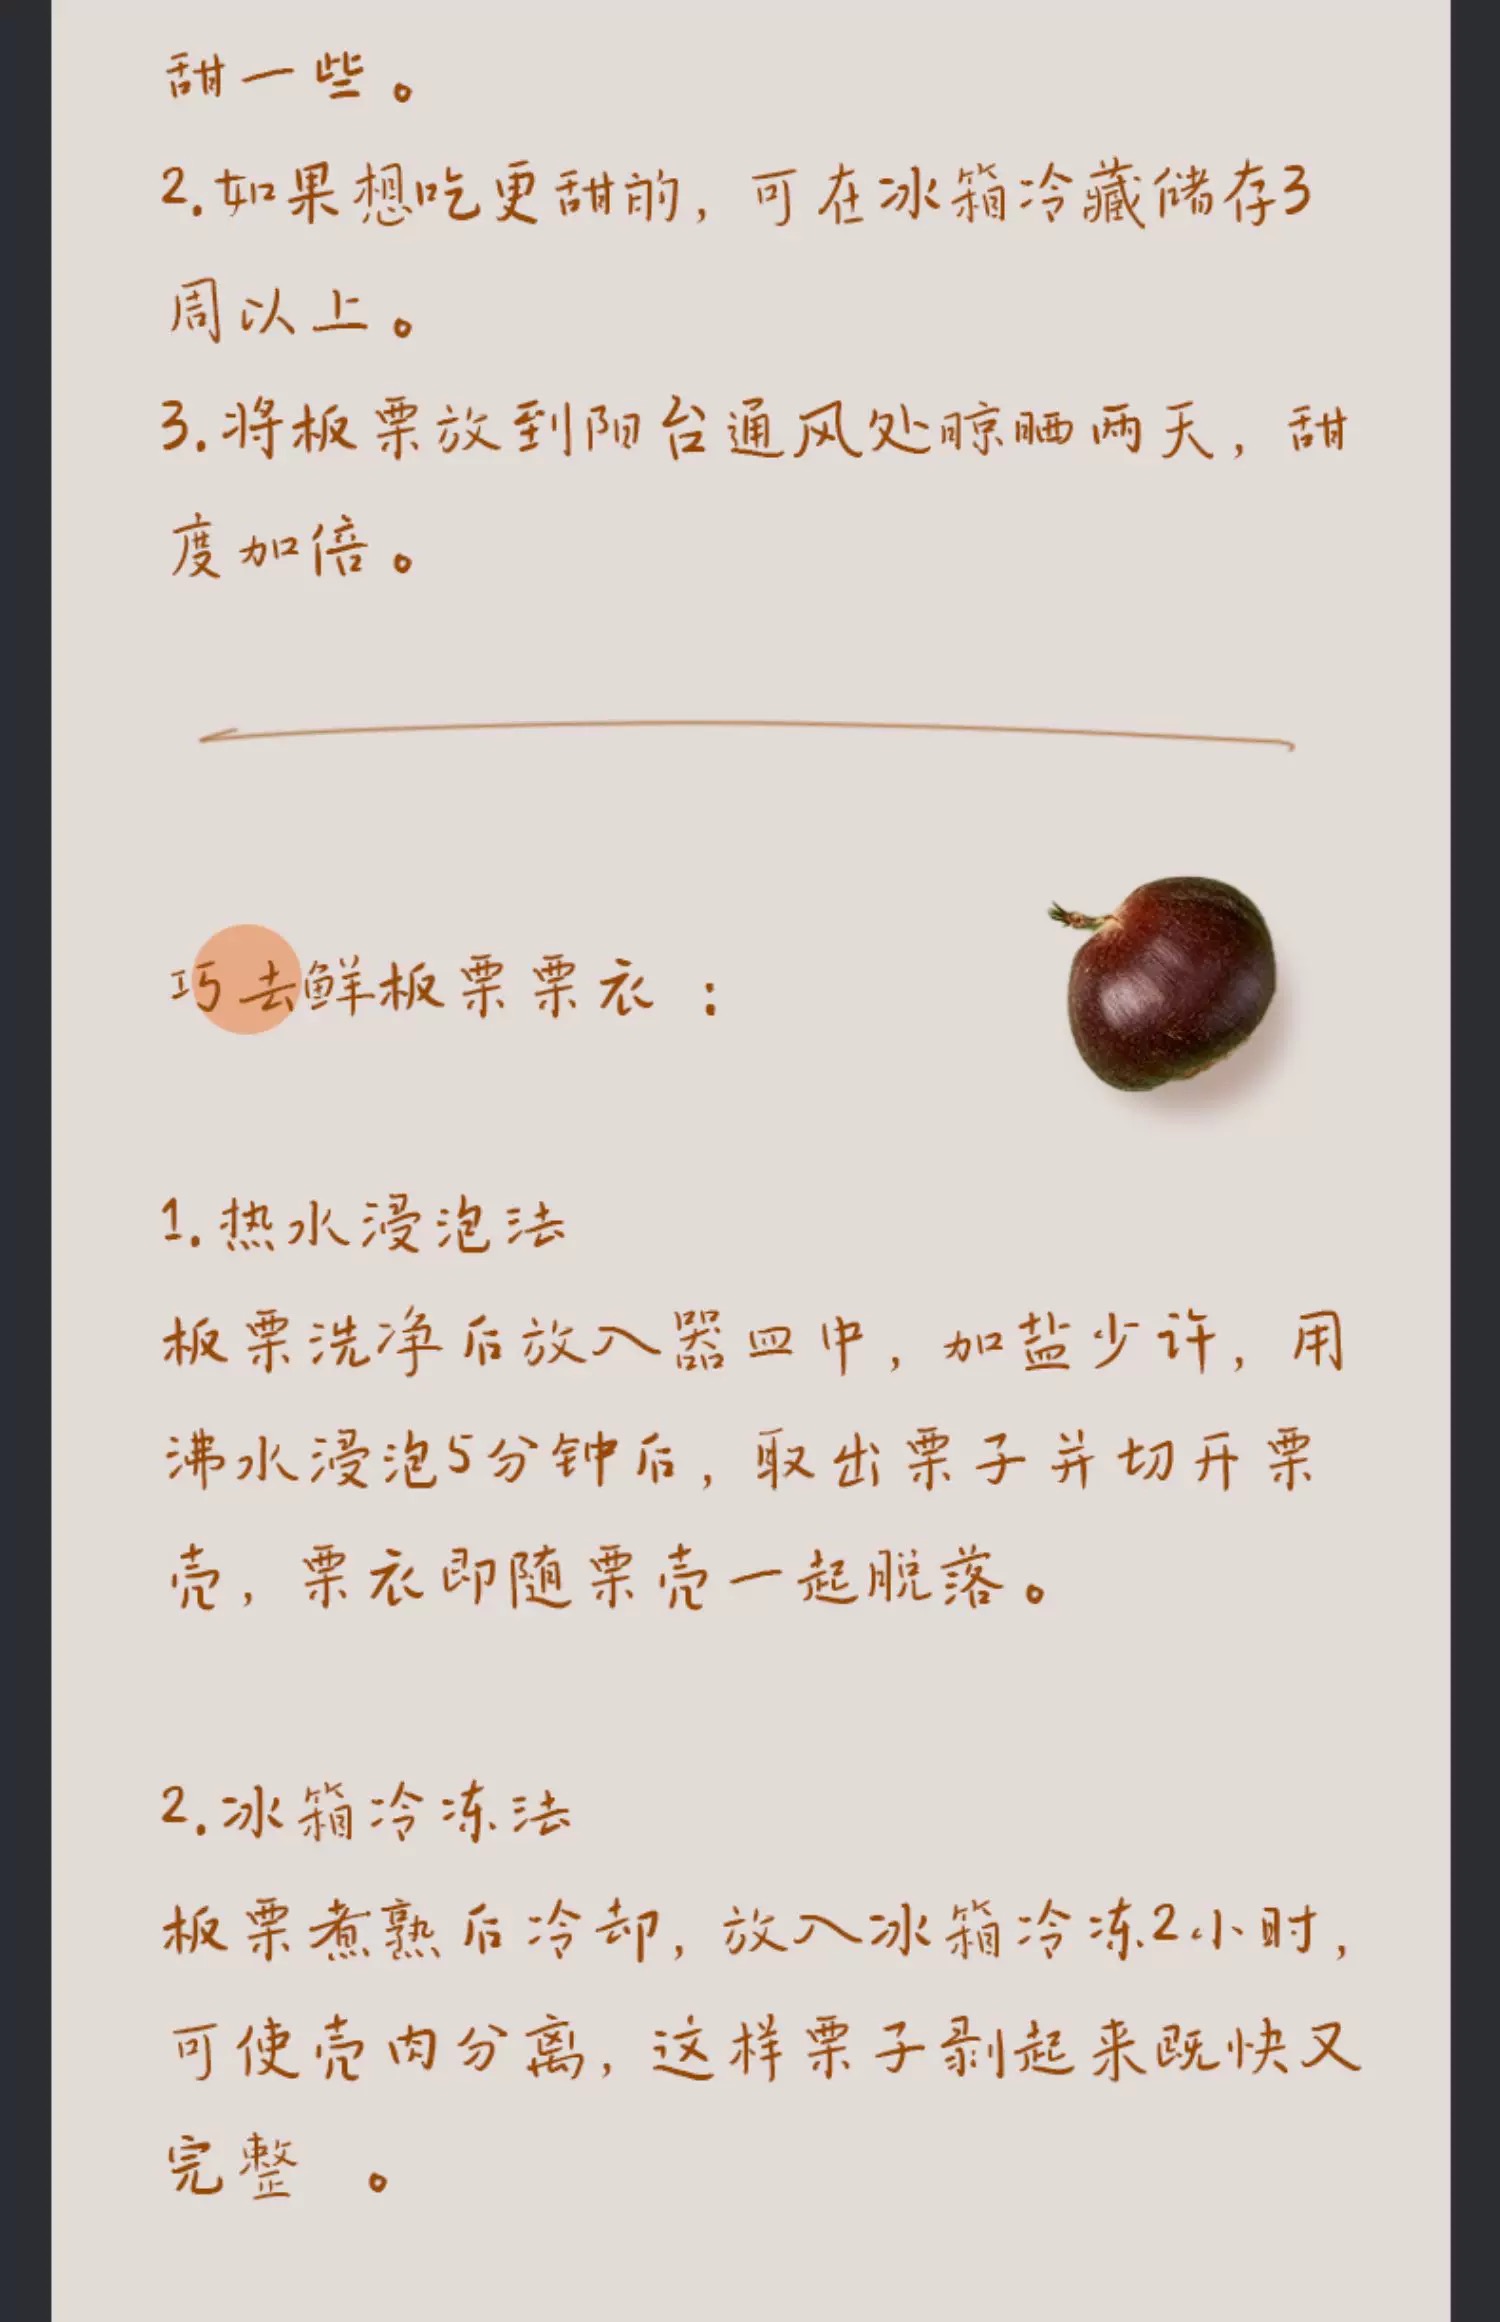 甜一些。
2.如果想吃更甜的，可在冰箱冷藏储存3
周以上。
3.将板栗放到阳台通风处晾晒两天，甜
度加倍。
巧去鲜板栗栗衣：
1.热水浸泡法
板栗洗净后放入器皿中，加盐少许，用
沸水浸泡5分钟后，取出栗子并切开栗
壳，栗衣即随栗壳一起脱落。
2.冰箱冷冻法
板栗煮熟后冷却，放入冰箱冷冻2小时，
可使壳肉分离，这样栗子剥起来既快又
完整 。